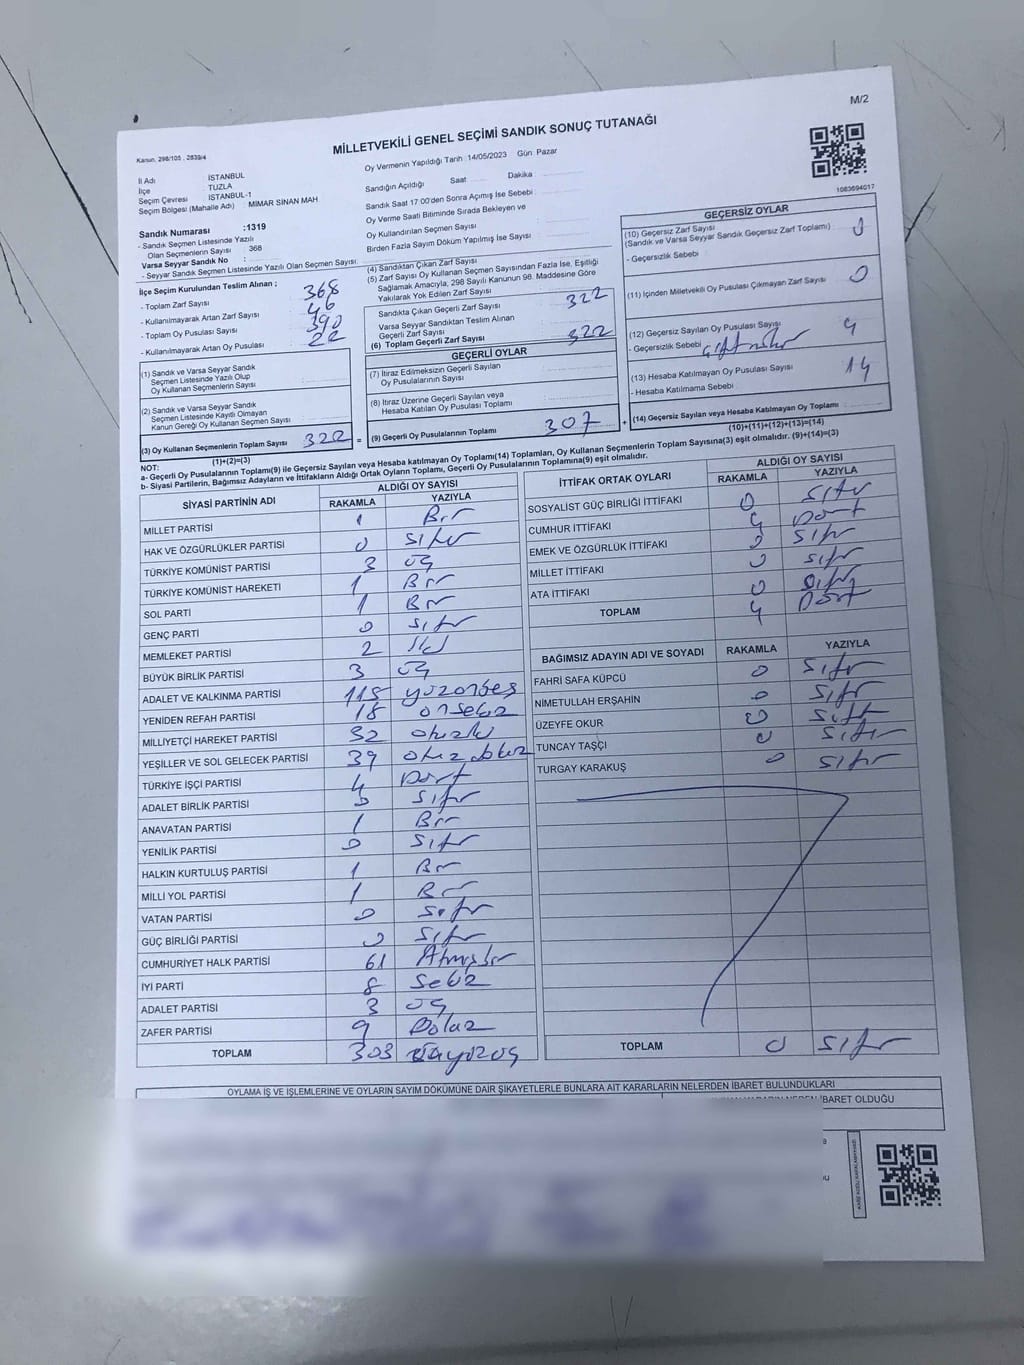 M/2
MİLLETVEKİLİ GENEL SEÇİMİ SANDIK SONUÇ TUTANAĞI
Kanun, 298/105 , 2839/4
İl Adı İSTANBUL
İlçe TUZLA
Seçim Çevresi İSTANBUL-1
Seçim Bölgesi (Mahalle Adı) MİMAR SİNAN MAH
Sandık Numarası :1319
- Sandık Seçmen Listesinde Yazılı
Olan Seçmenlerin Sayısı : 368
Varsa Seyyar Sandık No :
- Seyyar Sandık Seçmen Listesinde Yazılı Olan Seçmen Sayısı:
Oy Vermenin Yapıldığı Tarih 14/05/2023 Gün Pazar
Sandığın Açıldığı Saat Dakika
Sandık Saat 17:00'den Sonra Açımış İse Sebebi
Oy Verme Saati Bitiminde Sırada Bekleyen ve
Oy Kullandırılan Seçmen Sayısı
Birden Fazla Sayım Döküm Yapılmış İse Sayısı
1083694017
İlçe Seçim Kurulundan Teslim Alınan ;
- Toplam Zarf Sayısı 368
- Kullanılmayarak Artan Zarf Sayısı 46
- Toplam Oy Pusulası 390
- Kullanılmayarak Artan Oy Pusulası 22
(1) Sandık ve Varsa Seyyar Sandık
Seçmen Listesinde Yazılı Olup
Oy Kullanan Seçmenlerin Sayısı
(2) Sandık ve Varsa Seyyar Sandık
Seçmen Listesinde Kayıtlı Olmayan
Kanun Gereği Oy Kullanan Seçmen Sayısı
(3) Oy Kullanan Seçmenlerin Toplam Sayısı 322
(1)+(2)=(3)
(4) Sandıktan Çıkan Zarf Sayısı
(5) Zarf Sayısı Oy Kullanan Seçmen Sayısından Fazla İse, Eşitliği
Sağlamak Amacıyla, 298 Sayılı Kanunun 98. Maddesine Göre
Yakılarak Yok Edilen Zarf Sayısı
Sandıkta Çıkan Geçerli Zarf Sayısı 322
Varsa Seyyar Sandıktan Teslim Alınan
Geçerli Zarf Sayısı
(6) Toplam Geçerli Zarf Sayısı 322
GEÇERLİ OYLAR
(7) İtiraz Edilmeksizin Geçerli Sayılan
Oy Pusulalarının Sayısı
(8) İtiraz Üzerine Geçerli Sayılan veya
Hesaba Katılan Oy Pusulası Toplamı
= (9) Geçerli Oy Pusulalarının Toplamı 307 +
GEÇERSİZ OYLAR
(10) Geçersiz Zarf Sayısı
(Sandık ve Varsa Seyyar Sandık Geçersiz Zarf Toplamı) 0
- Geçersizlik Sebebi
(11) İçinden Milletvekili Oy Pusulası Çıkmayan Zarf Sayısı 0
(12) Geçersiz Sayılan Oy Pusulası Sayısı
- Geçersizlik Sebebi
(13) Hesaba Katılmayan Oy Pusulası Sayısı 14
- Hesaba Katılmama Sebebi
(14) Geçersiz Sayılan veya Hesaba Katılmayan Oy Toplamı
(10)+(11)+(12)+(13)=(14)
NOT:
a- Geçerli Oy Pusulalarının Toplamı(9) ile Geçersiz Sayılan veya Hesaba katılmayan Oy Toplamı(14) Toplamları, Oy Kullanan Seçmenlerin Toplam Sayısına(3) eşit olmalıdır. (9)+(14)=(3)
b- Siyasi Partilerin, Bağımsız Adayların ve İttifakların Aldığı Ortak Oyların Toplamı, Geçerli Oy Pusulalarının Toplamına(9) eşit olmalıdır.
SİYASİ PARTİNİN ADI ALDIĞI OY SAYISI
RAKAMLA YAZIYLA
MİLLET PARTİSİ 1 Bir
HAK VE ÖZGÜRLÜKLER PARTİSİ 0 sıfır
TÜRKİYE KOMÜNİST PARTİSİ 3 üç
TÜRKİYE KOMÜNİST HAREKETİ 1 Bir
SOL PARTİ 1 Bir
GENÇ PARTİ 0 sıfır
MEMLEKET PARTİSİ 2 iki
BÜYÜK BİRLİK PARTİSİ 3 üç
ADALET VE KALKINMA PARTİSİ 115 yüzonbeş
YENİDEN REFAH PARTİSİ 18 onsekiz
MİLLİYETÇİ HAREKET PARTİSİ 32 otuziki
YEŞİLLER VE SOL GELECEK PARTİSİ 39 otuzdokuz
TÜRKİYE İŞÇİ PARTİSİ 4 Dört
ADALET BİRLİK PARTİSİ 0 sıfır
ANAVATAN PARTİSİ 1 Bir
YENİLİK PARTİSİ 0 sıfır
HALKIN KURTULUŞ PARTİSİ 1 Bir
MİLLİ YOL PARTİSİ 1 Bir
VATAN PARTİSİ 0 sıfır
GÜÇ BİRLİĞİ PARTİSİ 0 sıfır
CUMHURİYET HALK PARTİSİ 61 Atmışbir
İYİ PARTİ 8 Sekiz
ADALET PARTİSİ 3 üç
ZAFER PARTİSİ 9 Dokuz
TOPLAM 303 üçyüzüç
İTTİFAK ORTAK OYLARI ALDIĞI OY SAYISI
RAKAMLA YAZIYLA
SOSYALİST GÜÇ BİRLİĞİ İTTİFAKI 0 sıfır
CUMHUR İTTİFAKI 4 Dört
EMEK VE ÖZGÜRLÜK İTTİFAKI 0 sıfır
MİLLET İTTİFAKI 0 sıfır
ATA İTTİFAKI 0 sıfır
TOPLAM 4 Dört
BAĞIMSIZ ADAYIN ADI VE SOYADI RAKAMLA YAZIYLA
FAHRİ SAFA KÜPCÜ 0 sıfır
NİMETULLAH ERŞAHİN 0 sıfır
ÜZEYFE OKUR 0 sıfır
TUNCAY TAŞÇI 0 sıfır
TURGAY KARAKUŞ 0 sıfır
TOPLAM 0 sıfır
OYLAMA İŞ VE İŞLEMLERİNE VE OYLARIN SAYIM DÖKÜMÜNE DAİR ŞİKAYETLERLE BUNLARA AİT KARARLARIN NELERDEN İBARET BULUNDUKLARI
İBARET OLDUĞU